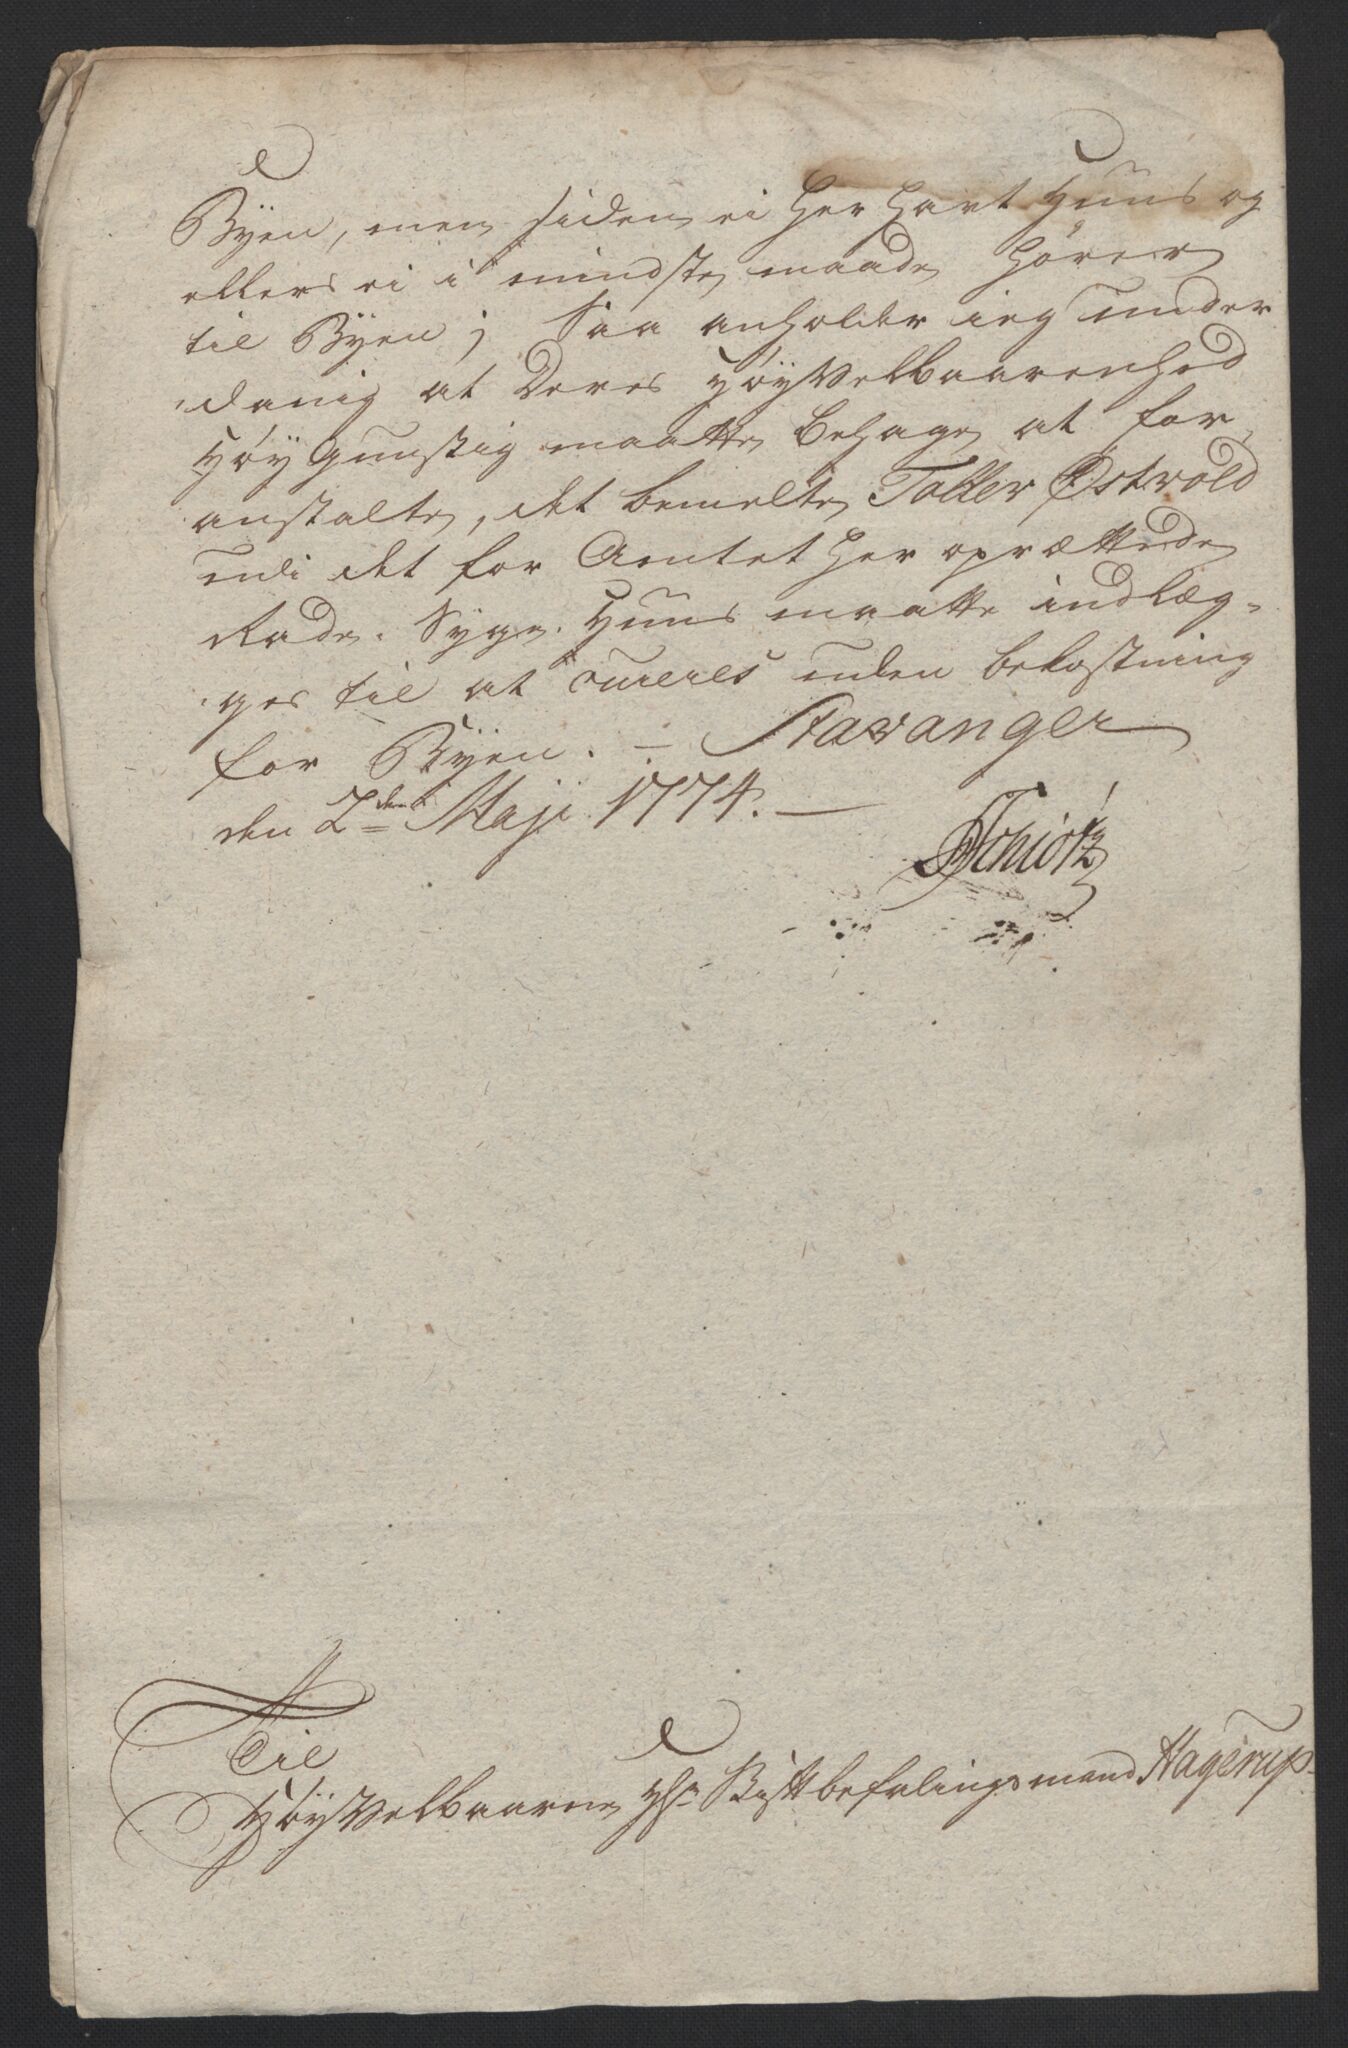 Byen, men siden ei her havt Huus og
ellers ei i mindste maade hører
til Byen; Saa anholder ieg under
danig at Deres HøyVelbaarenhed
Høygunstig maatte behage at for
anstalte, det bemelte Toller Østvold
udi det for Amtet her oprættede
Rade-Syge-Huus maatte indlæg-
ges til at cureres uden bekostning
for Byen. — Stavanger
den 2den Maji 1774. —
Schiøtz
Til
HøyVelbaarne Hr Stiftbefalingsmand Hagerup